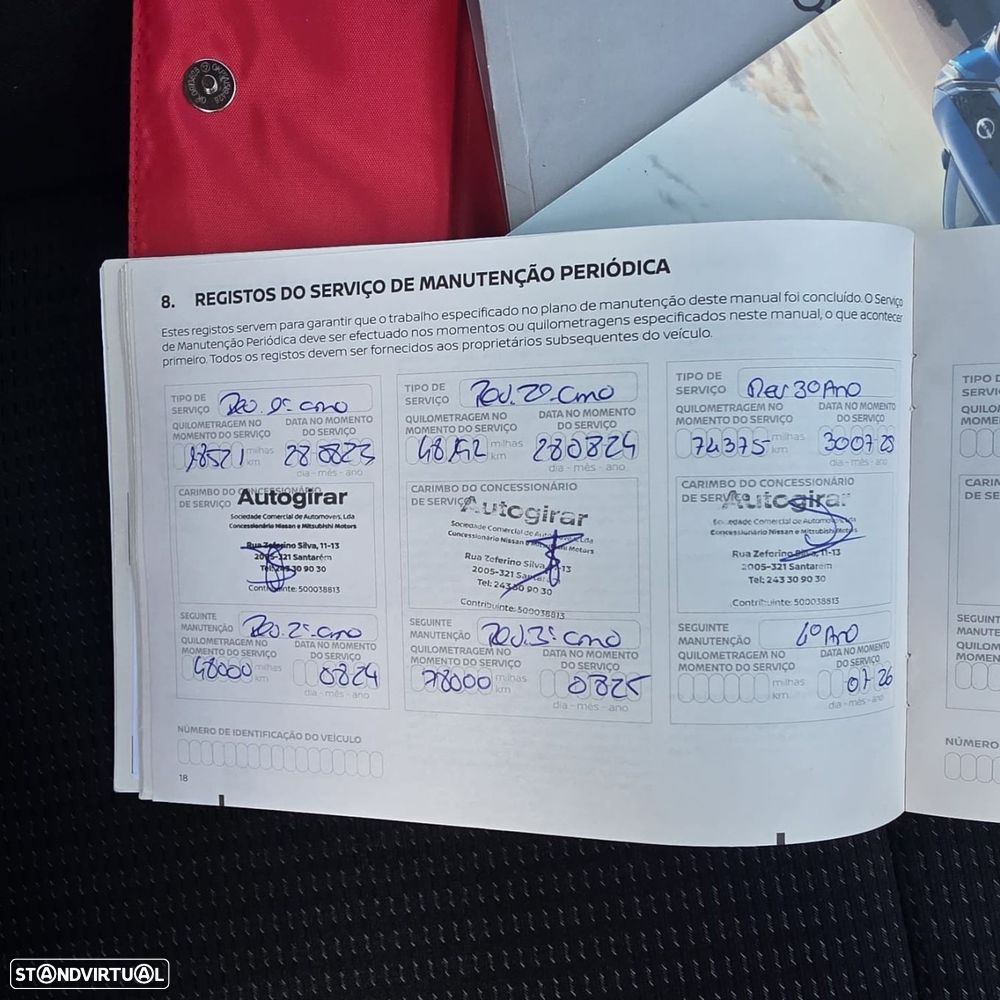 8. REGISTOS DO SERVIÇO DE MANUTENÇÃO PERIÓDICA
Estes registos servem para garantir que o trabalho especificado no plano de manutenção deste manual foi concluído. O Serviço
de Manutenção Periódica deve ser efectuado nos momentos ou quilometragens especificados neste manual, o que acontecer
primeiro. Todos os registos devem ser fornecidos aos proprietários subsequentes do veículo.
TIPO DE
SERVIÇO
QUILOMETRAGEM NO
MOMENTO DO SERVIÇO
DATA NO MOMENTO
DO SERVIÇO
18521 milhas
km
280823
dia - mês - ano
CARIMBO DO CONCESSIONÁRIO
DE SERVIÇO
Autogirar
Sociedade Comercial de Automoveis, Lda
Concessionário Nissan e Mitsubishi Motors
Rua Zeferino Silva, 11-13
2005-321 Santarém
Tel: 243 30 90 30
Contribuinte: 500038813
SEGUINTE
MANUTENÇÃO Rev. 2º
QUILOMETRAGEM NO
MOMENTO DO SERVIÇO
DATA NO MOMENTO
DO SERVIÇO
48000 milhas
km
0824
dia - mês - ano
NÚMERO DE IDENTIFICAÇÃO DO VEÍCULO
18
TIPO DE
SERVIÇO Rev. 2º
QUILOMETRAGEM NO
MOMENTO DO SERVIÇO
DATA NO MOMENTO
DO SERVIÇO
milhas
km
280824
dia - mês - ano
CARIMBO DO CONCESSIONÁRIO
DE SERVIÇO
Autogirar
Sociedade Comercial de Automoveis, Lda
Concessionário Nissan e Mitsubishi Motors
Rua Zeferino Silva, 11-13
2005-321 Santarém
Tel: 243 30 90 30
Contribuinte: 500038813
SEGUINTE
MANUTENÇÃO Rev. 3º
QUILOMETRAGEM NO
MOMENTO DO SERVIÇO
DATA NO MOMENTO
DO SERVIÇO
78000 milhas
km
0825
dia - mês - ano
TIPO DE
SERVIÇO Rev 3º Ano
QUILOMETRAGEM NO
MOMENTO DO SERVIÇO
DATA NO MOMENTO
DO SERVIÇO
74375 milhas
km
dia - mês - ano
CARIMBO DO CONCESSIONÁRIO
DE SERVIÇO
Autogirar
Sociedade Comercial de Automoveis, Lda
Concessionário Nissan e Mitsubishi Motors
Rua Zeferino Silva, 11-13
2005-321 Santarém
Tel: 243 30 90 30
Contribuinte: 500038813
SEGUINTE
MANUTENÇÃO 4º Ano
QUILOMETRAGEM NO
MOMENTO DO SERVIÇO
DATA NO MOMENTO
DO SERVIÇO
milhas
km
07 26
dia - mês - ano
STANDVIRTUAL